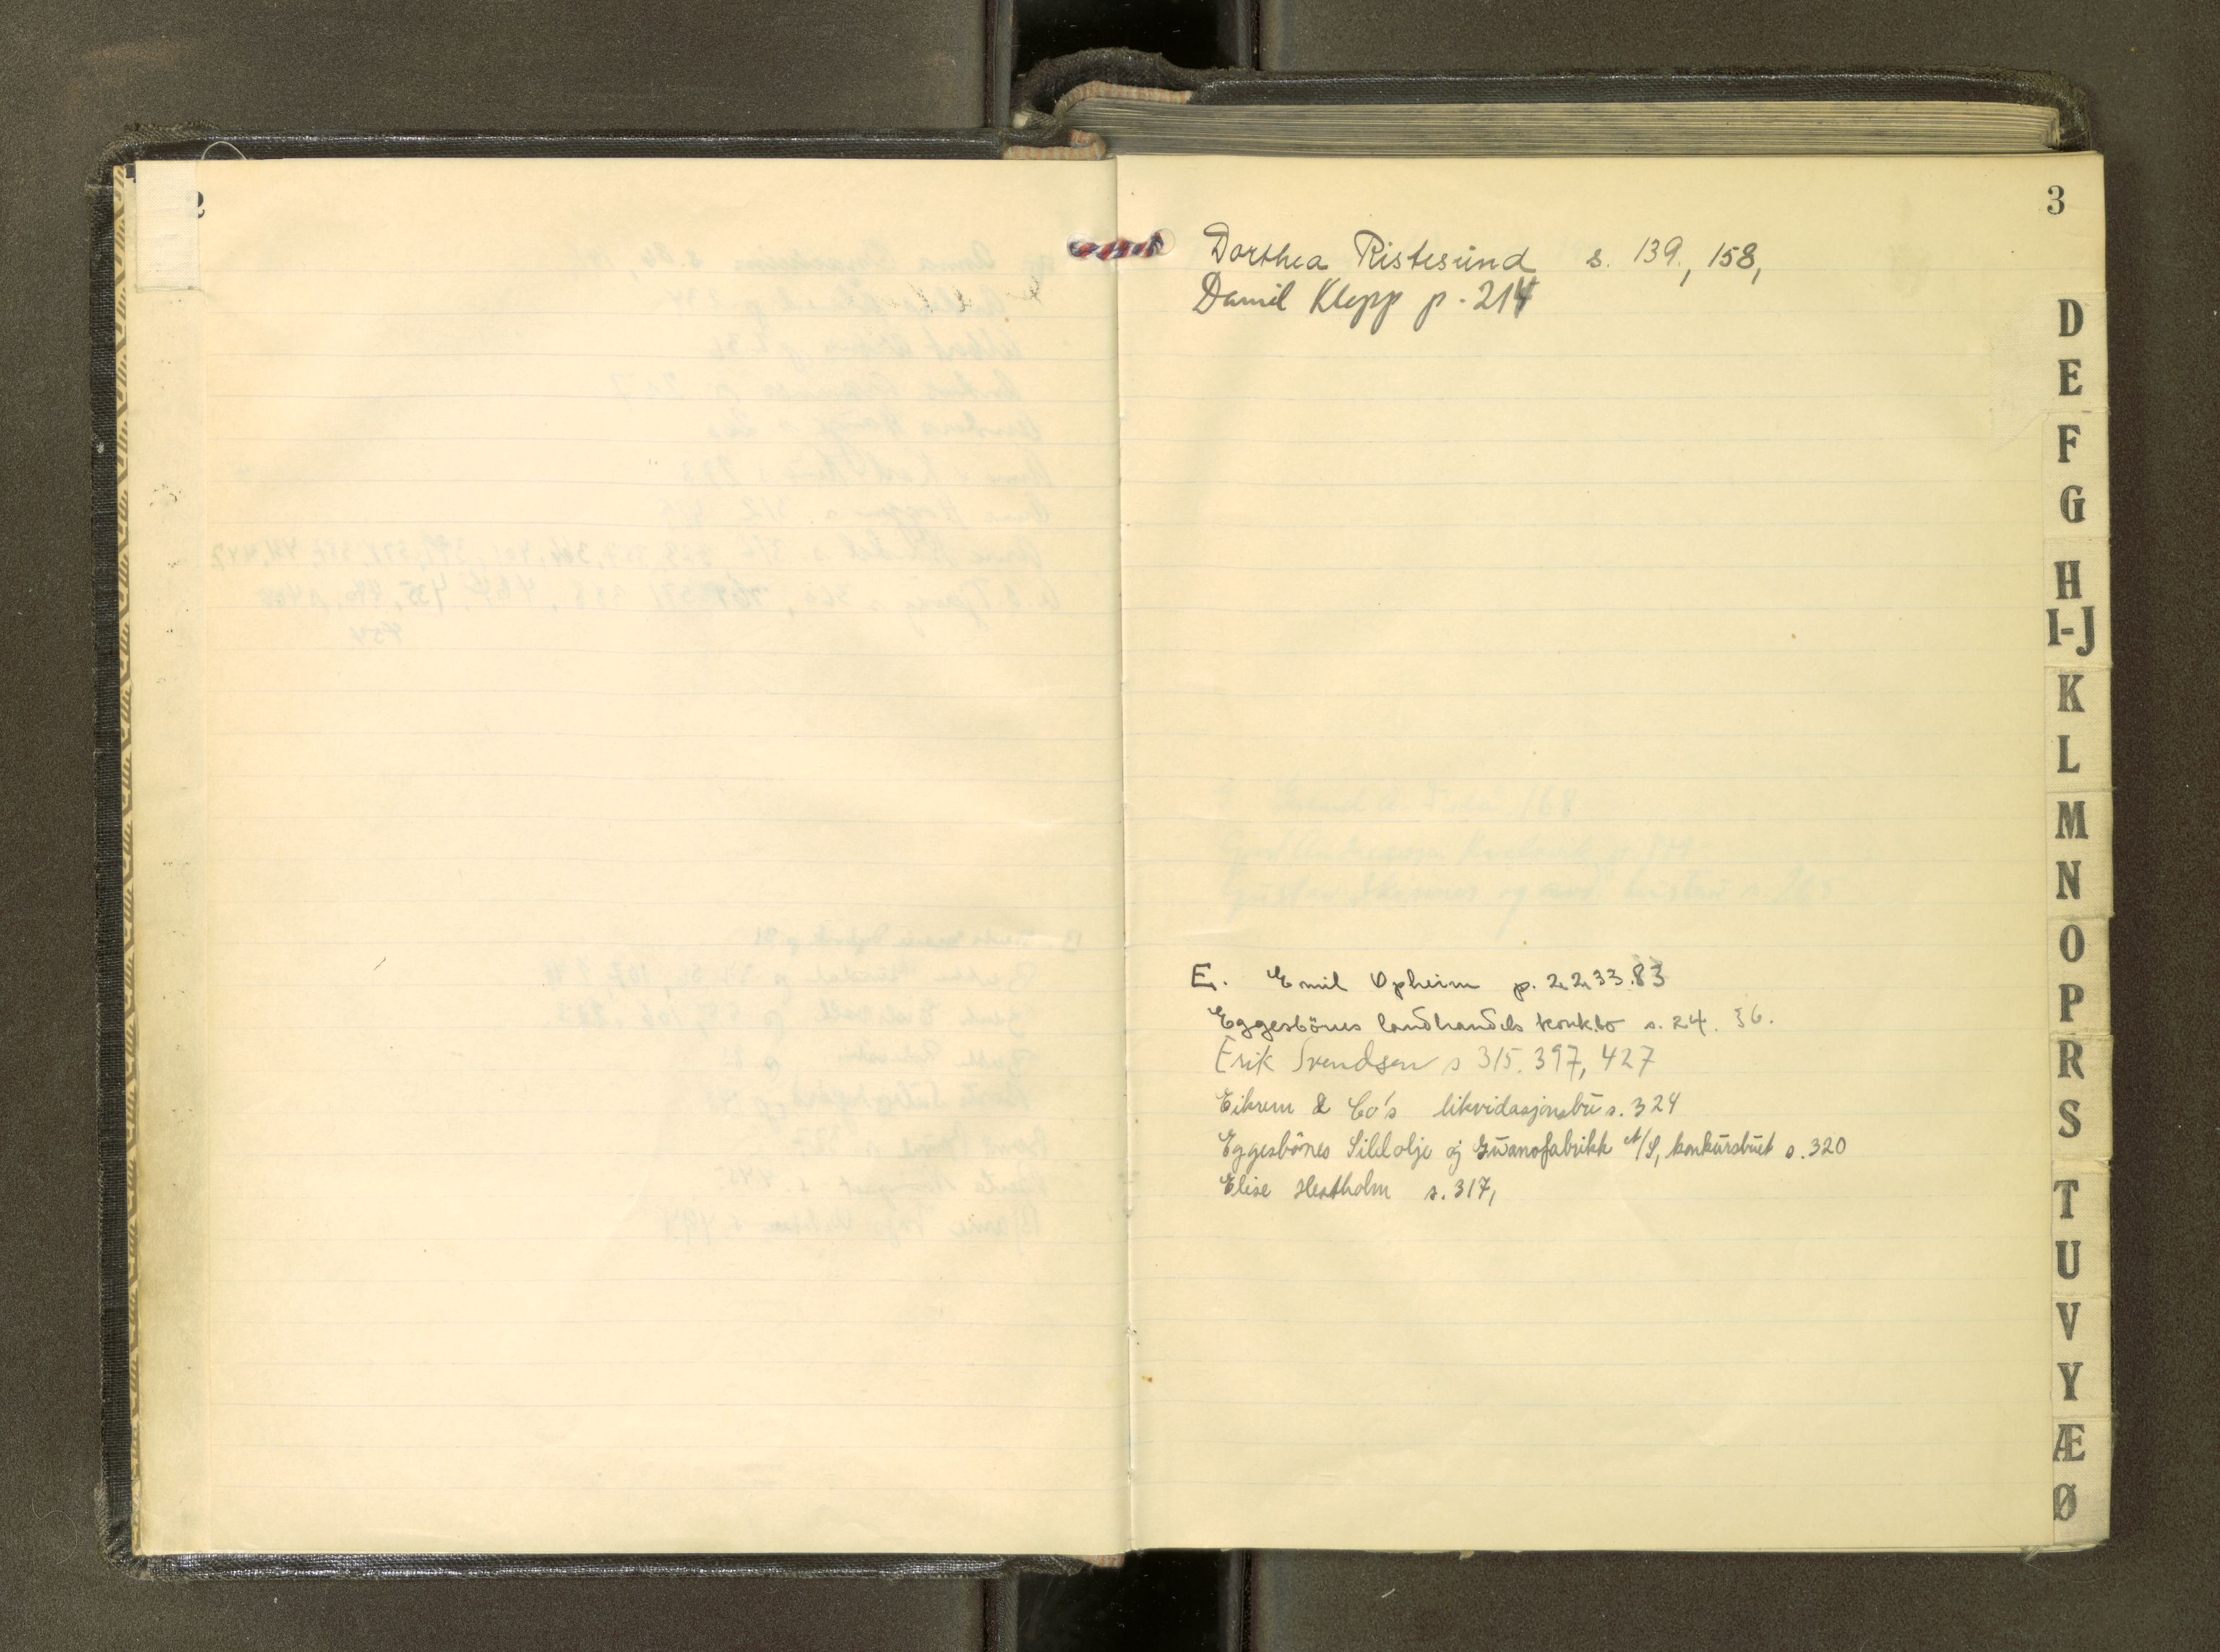 2
3
Dorthea Ristesund s. 139, 158,
Daniel Klepp p. 214
E. Emil Opheim p. 22, 33. 83
Eggesbönes landhandels konk.bo s. 24. 36.
Erik Svendsen s 315. 397, 427
Eikrem & Co's likvidasjonsbu s. 324
Eggesbönes Sildolje og Guanofabrikk A/S, konkursbuet s. 320
Elise Hestholm s. 317,
D
E
F
G
H
I-J
K
L
M
N
O
P
R
S
T
U
V
Y
Æ
Ø